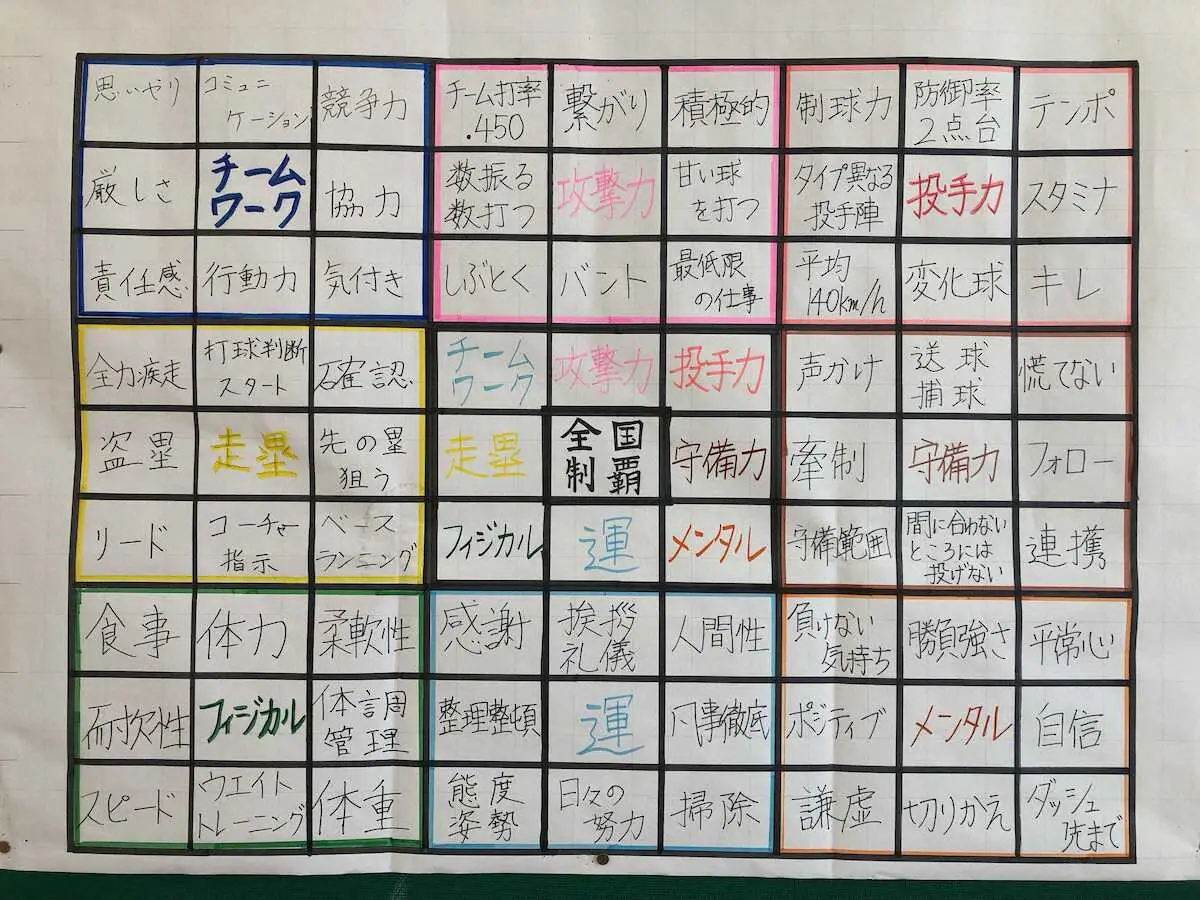 思いやり
コミュニ
ケーション
競争力
チーム打率
.450
繋がり
積極的
制球力
防御率
2点台
テンポ
厳しさ
チーム
ワーク
協力
数振る
数打つ
攻撃力
甘い球
を打つ
タイプ異なる
投手陣
投手力
スタミナ
責任感
行動力
気付き
しぶとく
バント
最低限
の仕事
平均
140km/h
変化球
キレ
全力疾走
打球判断
スタート
確認
チーム
ワーク
攻撃力
投手力
声かけ
送球
捕球
慌てない
盗塁
走塁
先の塁
狙う
走塁
全国
制覇
守備力
牽制
守備力
フォロー
リード
コーチャー
指示
ベース
ランニング
フィジカル
運
メンタル
守備範囲
間に合わない
ところには
投げない
連携
食事
体力
柔軟性
感謝
挨拶
礼儀
人間性
負けない
気持ち
勝負強さ
平常心
耐次性
フィジカル
体調
管理
整理整頓
運
凡事徹底
ポジティブ
メンタル
自信
スピード
ウエイト
トレーニング
体重
態度
姿勢
日々の
努力
掃除
謙虚
切りかえ
ダッシュ
先まで